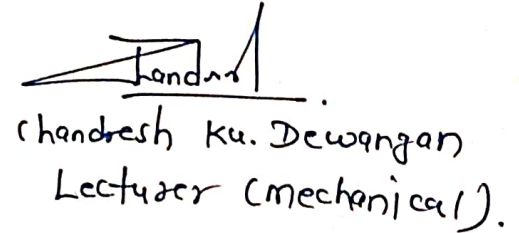 Chandresh Ku. Dewangan
Lecturer (mechanical).